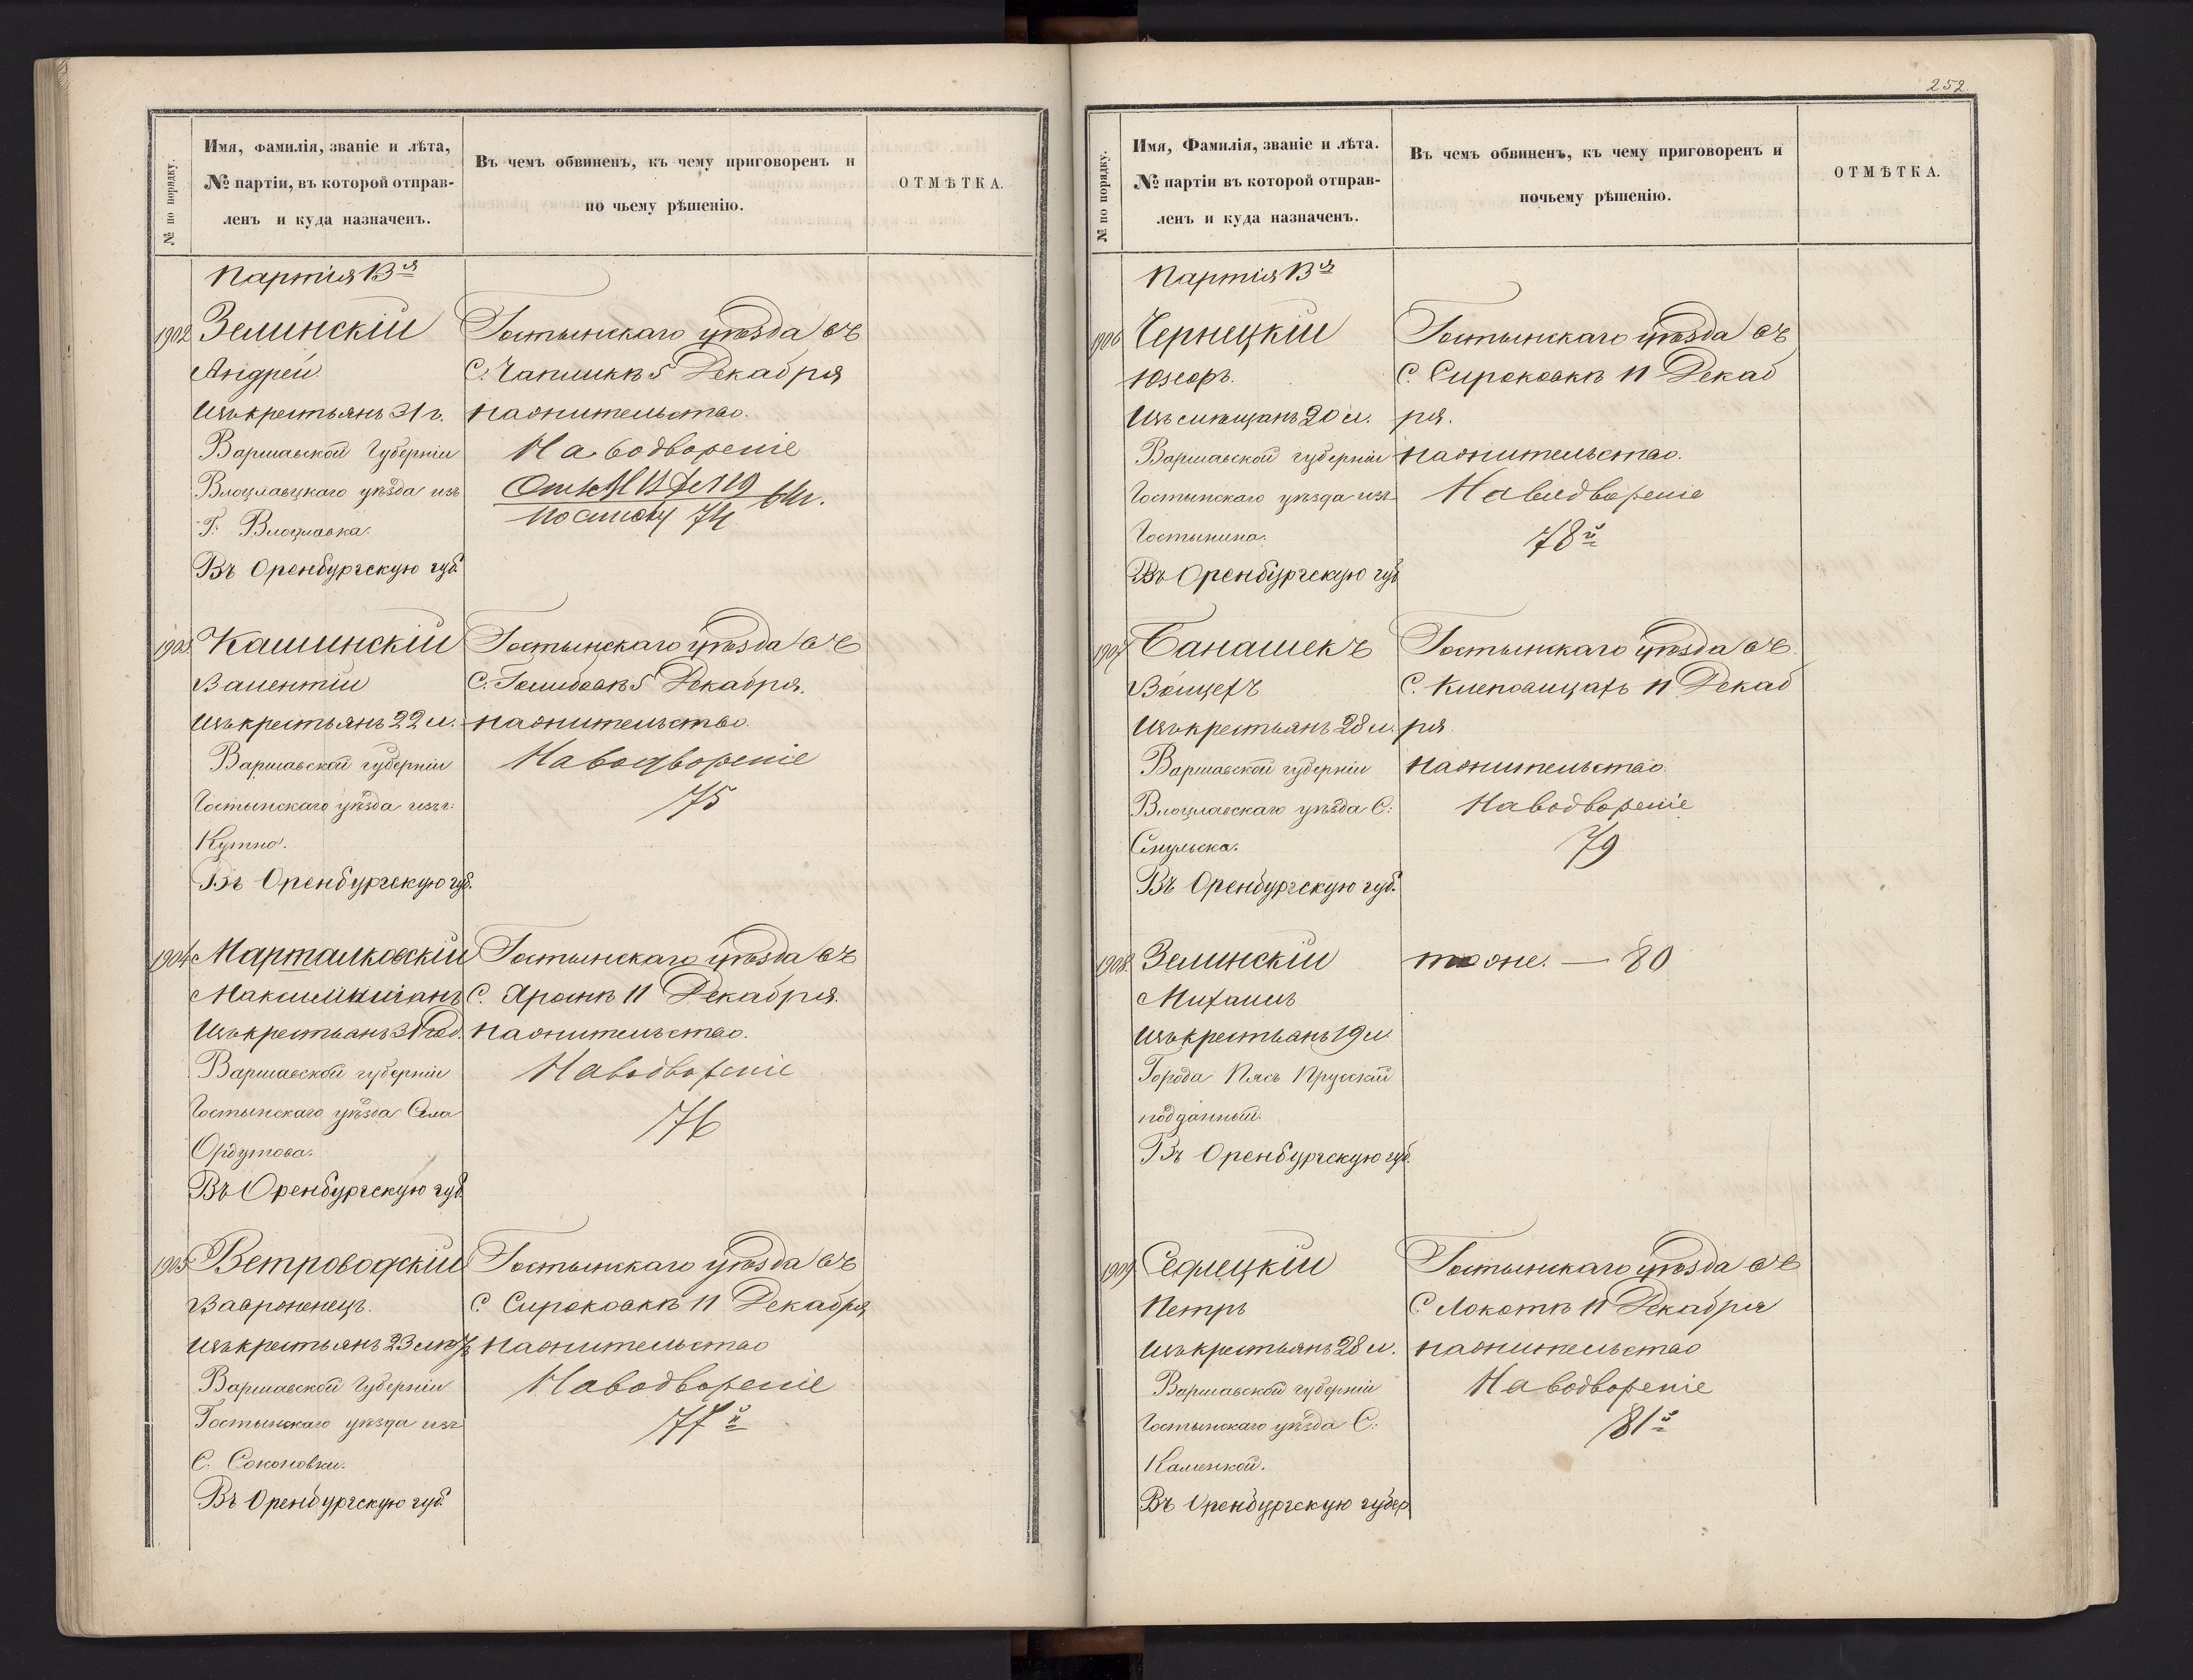 252
№ по порядку.
Имя, Фамилія, званіе и лѣта,
№ партіи, въ которой отправ-
ленъ и куда назначенъ.
Въ чемъ обвиненъ, къ чему приговоренъ и
по чьему рѣшенію.
ОТМѢТКА.
Партія 13я
1902
Зелинскій
Андрей
Изъ крестьянъ 31 г.
Варшавской Губерніи
Влоцлавскаго уѣзда изъ
Г. Влоцлавка.
Въ Оренбургскую губ.
Гостынскаго уѣзда въ
С. Чапликѣ 5 Декабря
на жительство.
На водвореніе
по списку 74
1903
Кашинскій
Валентій
Изъ крестьянъ 22 л.
Варшавской губерніи
Гостынскаго уѣзда изъ г.
Кутно.
Въ Оренбургскую губ.
Гостынскаго уѣзда въ
С. Голибовкѣ 5 Декабря.
на жительство
На водвореніе
75
1904
Марталковскій
Максимиліанъ
Изъ крестьянъ 31 год.
Варшавской губерніи
Гостынскаго уѣзда Села
Ордутова.
Въ Оренбургскую губ
Гостынскаго уѣзда въ
С. Яронкѣ 11 Декабря.
на жительство.
На водвореніе
76
1905
Ветроводскій
Вавроненецъ.
Изъ крестьянъ 23 лѣтъ
Варшавской Губерніи
Гостынскаго уѣзда изъ
С. Соколовки.
Въ Оренбургскую губ.
Гостынскаго уѣзда въ
С. Сироковкѣ 11 Декабря
на жительство
На водвореніе
77й
№ по порядку.
Имя, Фамилія, званіе и лѣта.
№ партіи въ которой отправ-
ленъ и куда назначенъ.
Въ чемъ обвиненъ, къ чему приговоренъ и
почьему рѣшенію.
ОТМѢТКА.
Партія 13я
1906
Чернецкій
Юзефъ.
Изъ мѣщанъ 20 л.
Варшавской губерніи
Гостынскаго уѣзда изъ
Гостынина.
Въ Оренбургскую губ
Гостынскаго уѣзда въ
С. Сироковкѣ 11 Декаб
ря.
на жительство.
На водвореніе
78й
1907
Банашекъ
Войцехъ
Изъ крестьянъ 28 л.
Варшавской губерніи
Влоцлавскаго уѣзда С.
Снульска.
Въ Оренбургскую губ.
Гостынскаго уѣзда въ
С. Клеповицахъ 11 Декаб
ря
на жительство.
На водвореніе
79
1908
Зелинскій
Михаилъ
Изъ крестьянъ 19 л.
Города Прусскій
подданный.
Въ Оренбургскую губ.
тоже. — 80
1909
Седлецкій
Петръ
Изъ крестьянъ 28 л.
Варшавской губерніи
Гостынскаго уѣзда С.
Каменкой.
Въ Оренбургскую губер
Гостынскаго уѣзда въ
С. Локоткѣ 11 Декабря
на жительство
На водвореніе
81й